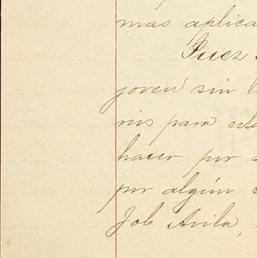 mas aplica
Juez
joven sin l
rios para este
hacer por
por algún
Job Avila,